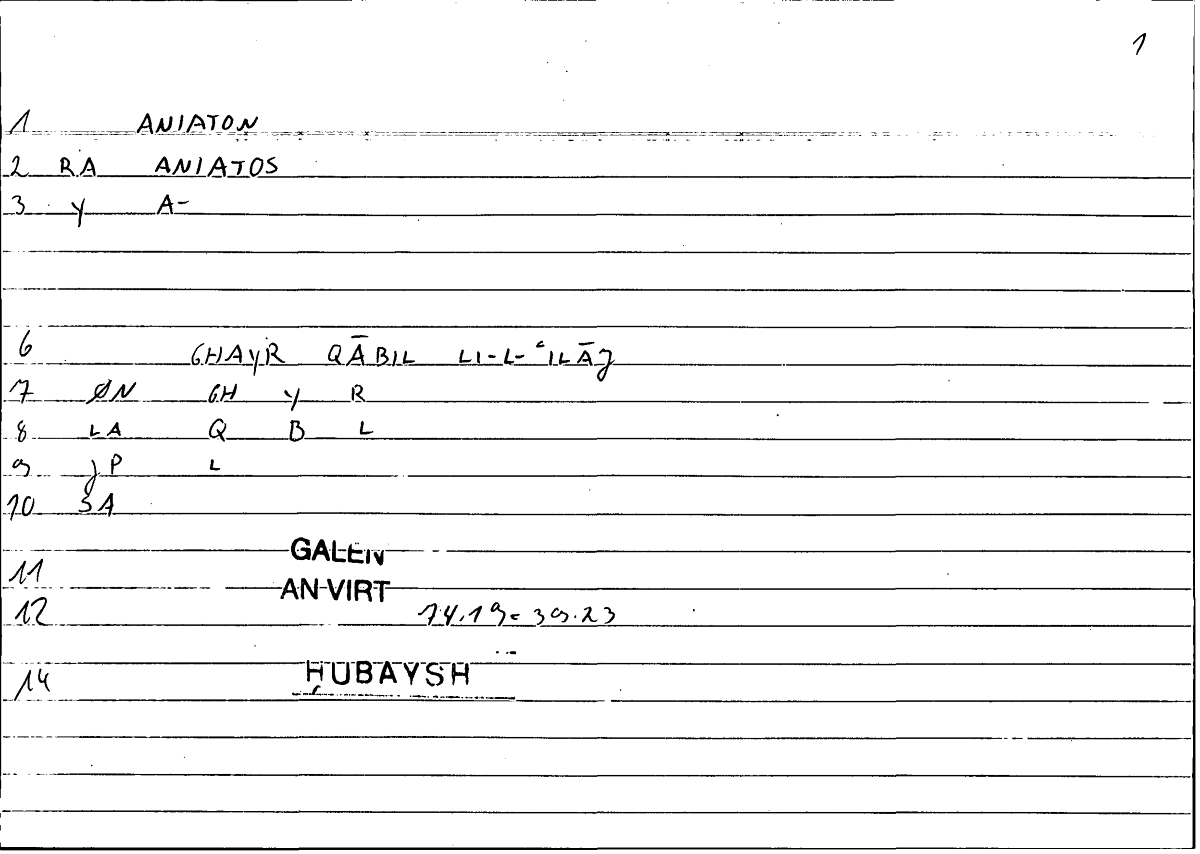 1
1 ANIATON
2 RA ANIATOS
3 y A-
6 GHAYR QĀBIL LI-L-ʿILĀJ
7 ØN GH Y R
8 LA Q B L
9 JP L
10 SA
11 GALEN
12 AN VIRT
14.19 = 39.23
14 ḤUBAYSH